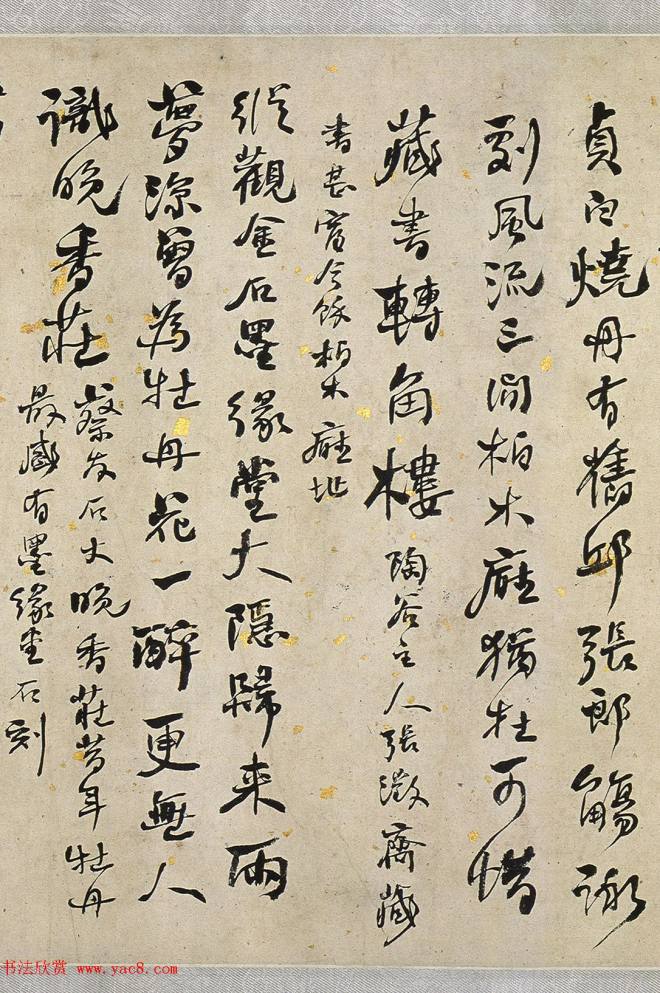 貞白燒丹有舊邱張郎觴詠
到風流三間柏木廳猶在可惜
藏書轉角樓 陶谷主人張澂齋藏
書甚富今餘柏木廳址
縱觀金石墨緣堂大隱歸來兩
夢涼曾為牡丹花一醉更無人
識晚香莊 蔡友石丈晚香莊昔年牡丹
最盛有墨緣堂石刻
书法欣赏 www.yac8.com